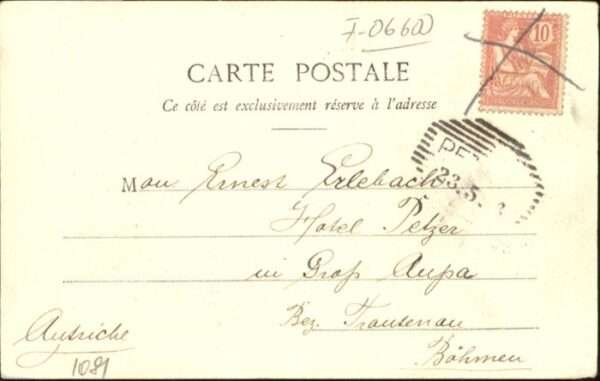 I-0660
10
CARTE POSTALE
Ce côté est exclusivement réserve à l'adresse
PE
23.5.
Mon Ernest Erlebach
Hotel Petzer
in Groß Aupa
Bez. Trautenau
Böhmen
Autriche
1081